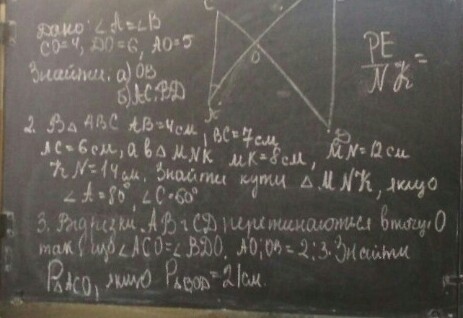 Дано: ∠A=∠B
CO=4, DO=6, AO=5
Знайти: а) OB
б) AC:BD
C
O
D
PE
NK =
2. В △ ABC AB=4см, BC=7см
AC=6см, а в △ MNK MK=8см, MN=12см
KN=14см. Знайти кути △ MNK, якщо
∠A=80° ∠C=60°
3. Відрізки AB і CD перетинаються в точці O
так, що ∠ACO=∠BDO, AO:OB=2:3. Знайти
P△ACO, якщо P△BOD=21см.